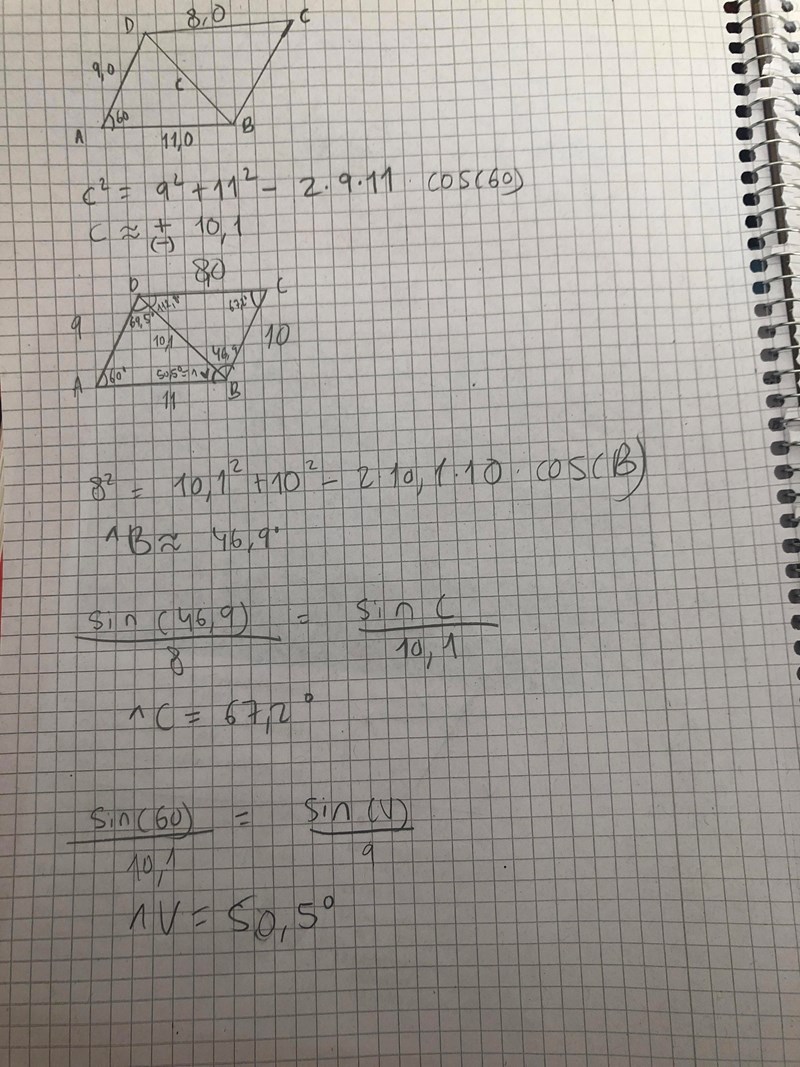 D 8,0 C
9,0
C
60
A 11,0 B
c² = 9² + 11² - 2·9·11 · cos(60)
c ≈ +(-) 10,1
8,0
D C
69,5° 67,2°
9
10,1 46,9 10
A 60° 50,5°=v B
11
8² = 10,1² + 10² - 2·10,1·10 · cos(B)
^B ≈ 46,9°
sin(46,9)/8 = sin C/10,1
^C = 67,2°
sin(60)/10,1 = sin(V)/9
^V = 50,5°